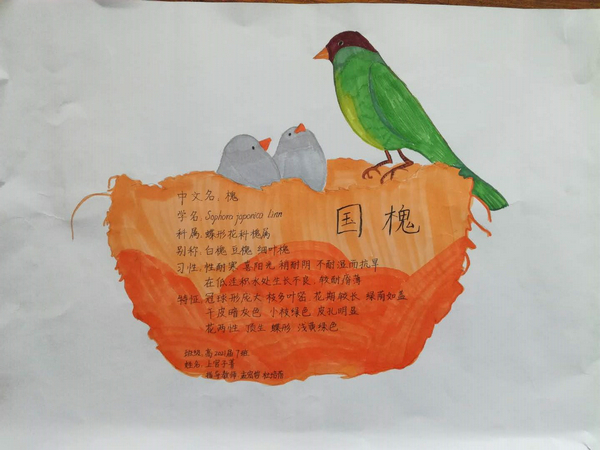 国槐
中文名：槐
学名：Sophora japonica Linn
科属：蝶形花科槐属
别称：白槐 豆槐 细叶槐
习性：性耐寒 喜阳光 稍耐阴 不耐湿而抗旱
在低洼积水处生长不良 较耐瘠薄
特征：冠球形庞大 枝多叶密 花期较长 绿荫如盖
干皮暗灰色 小枝绿色 皮孔明显
花两性 顶生 蝶形 浅黄绿色
班级：高
姓名：上官子
指导教师